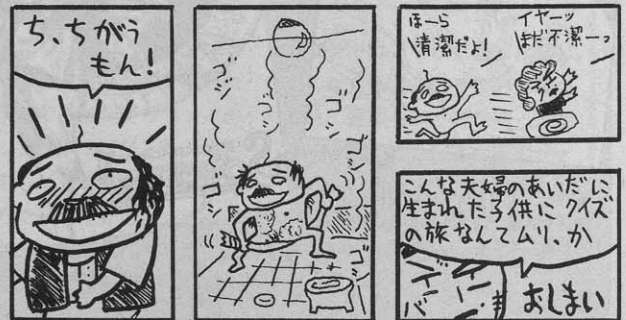 ち、ちがう
もん!
ゴシ
ゴシ
ゴシ
ゴシ
ゴシ
ほーら
清潔だよ!
イヤーッ
まだ不潔ーっ
こんな夫婦のあいだに
生まれた子供に クイズ
の旅なんてムリ、か
おしまい